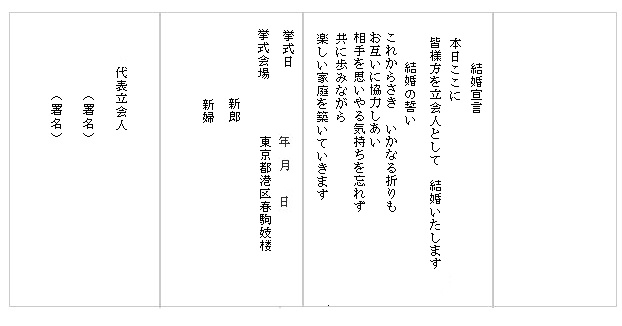 結婚宣言
本日ここに
皆様方を立会人として　結婚いたします
結婚の誓い
これからさき　いかなる折りも
お互いに協力しあい
相手を思いやる気持ちを忘れず
共に歩みながら
楽しい家庭を築いていきます
挙式日　年　月　日
挙式会場　東京都港区春駒妓楼
新郎
新婦
代表立会人
（署名）
（署名）